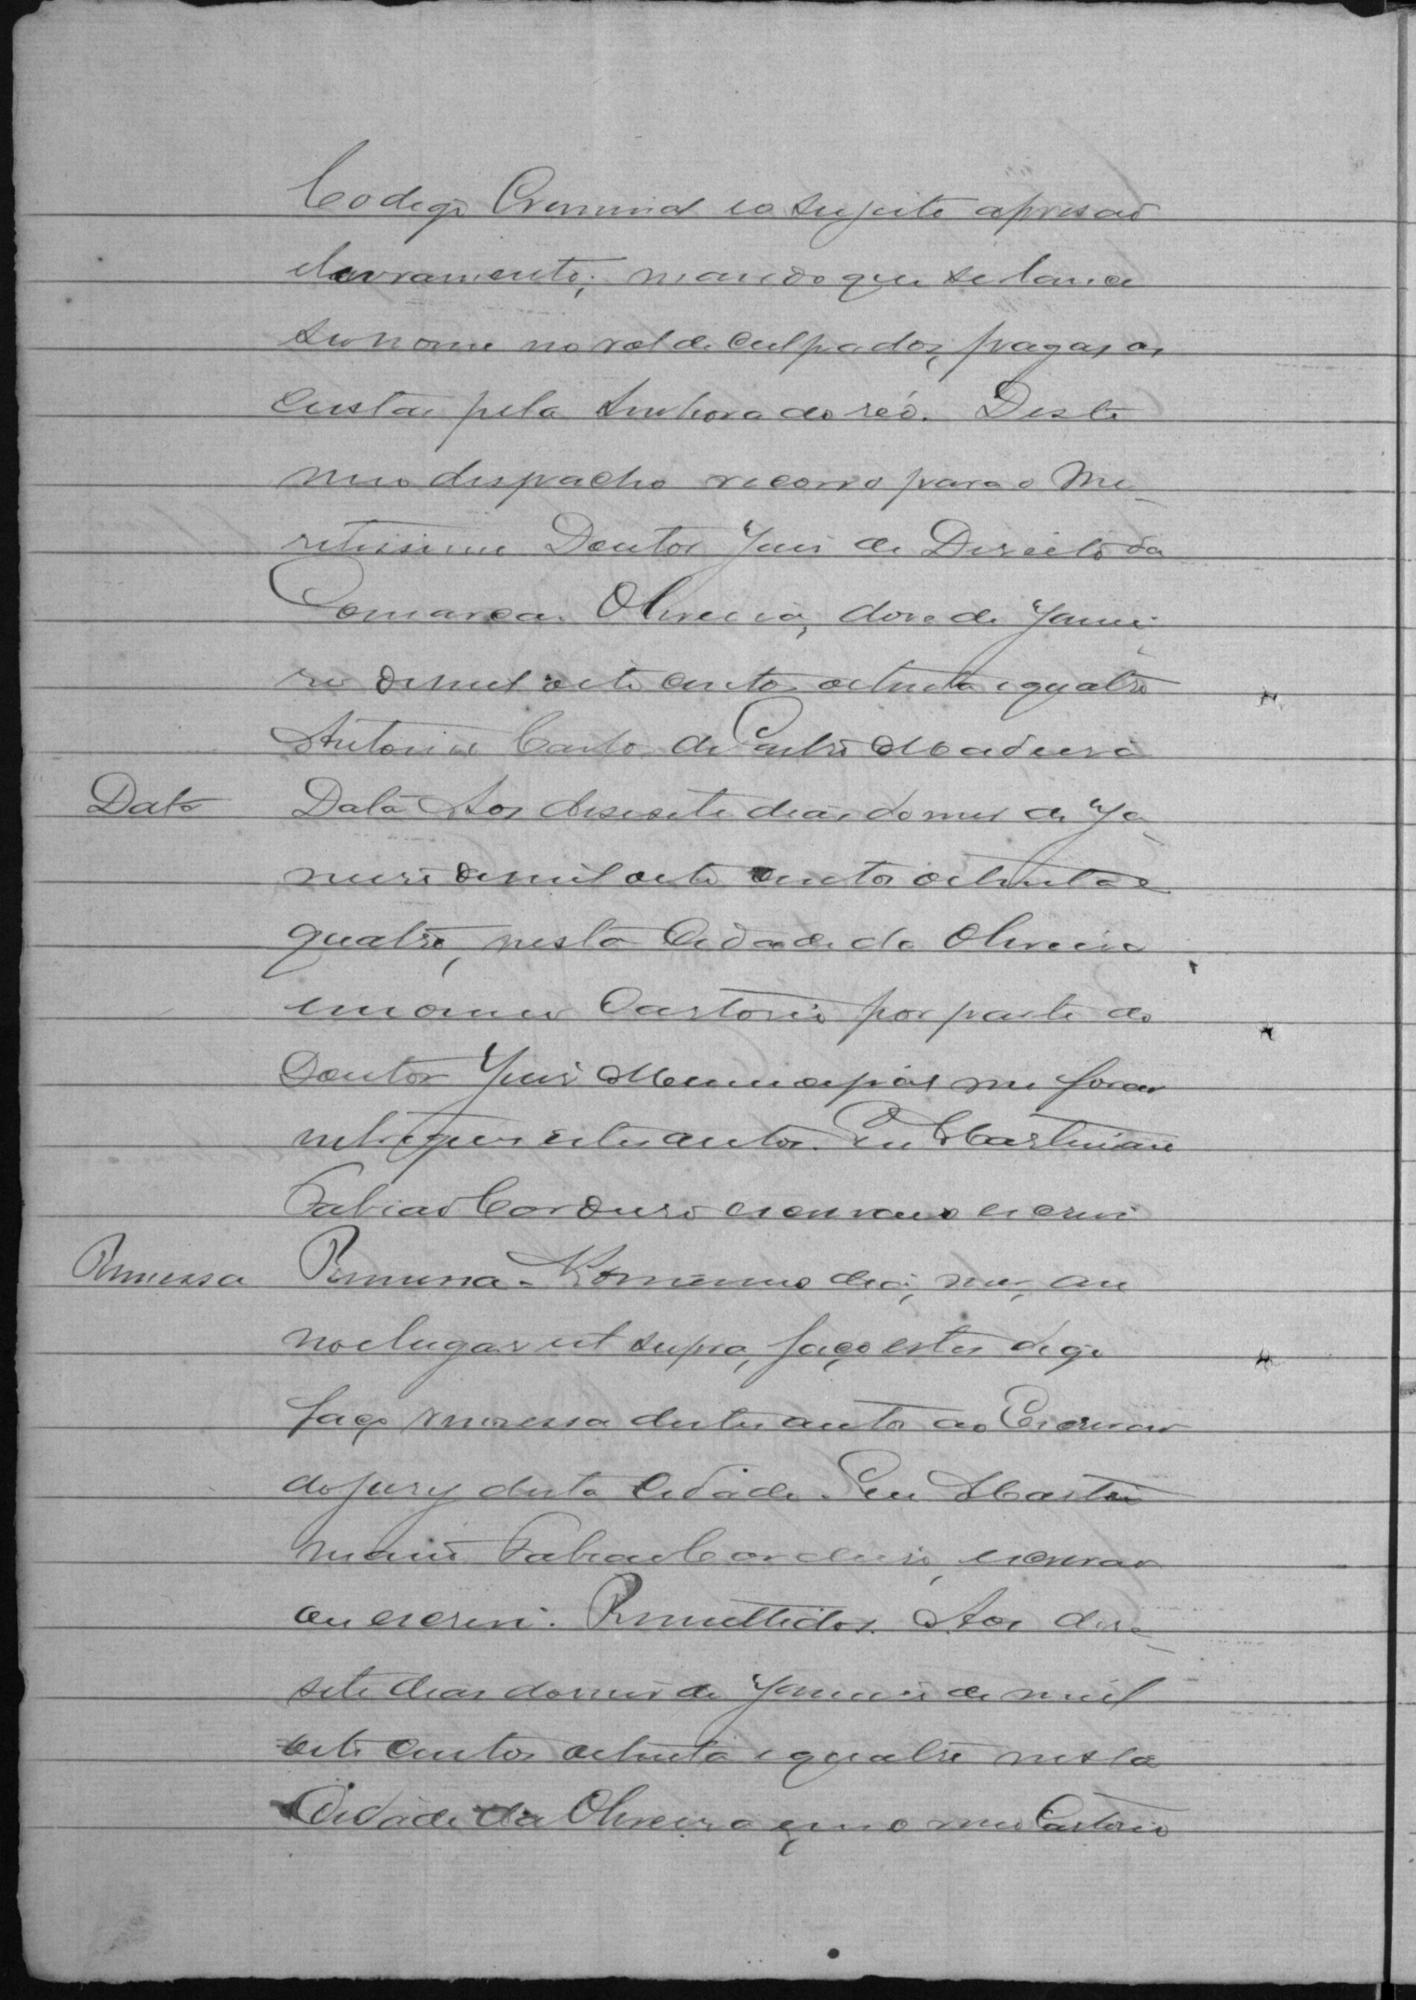 Codigo Criminal e o sujeito a prisão
e livramento; mando que se lance
seu nome no rol de culpados, pagas as
custas pela senhora do réo. Deste
meu despacho recorro para o Me-
retissimo Doutor Juis de Direito da
Comarca. Oliveira, dose de Janei-
ro de mil oito centos oitenta e quatro
Antonio Carlos de Castro Madeira
Data Data Aos desesete dias do mes de Ja-
neiro de mil oito centos oitenta e
quatro, nesta Cidade de Oliveira
em o meu Cartorio por parte do
Doutor Juis Municipal me forão
entregues estes autos. Eu Martiniano
Fabião Cordeiro escrivão o escrevi
Remessa Remessa - No mesmo dia, mes, an
no e lugar ut supra, faço estes digo
faço remessa destes autos ao Escrivão
do jury desta Cidade. Eu Marti
niano Fabião Cordeiro, escrivão
que escrevi. Remettidos. Aos dese-
sete dias do mes de Janeiro de mil
oito centos oitenta e quatro nesta
Cidade de Oliveira em o meu Cartorio